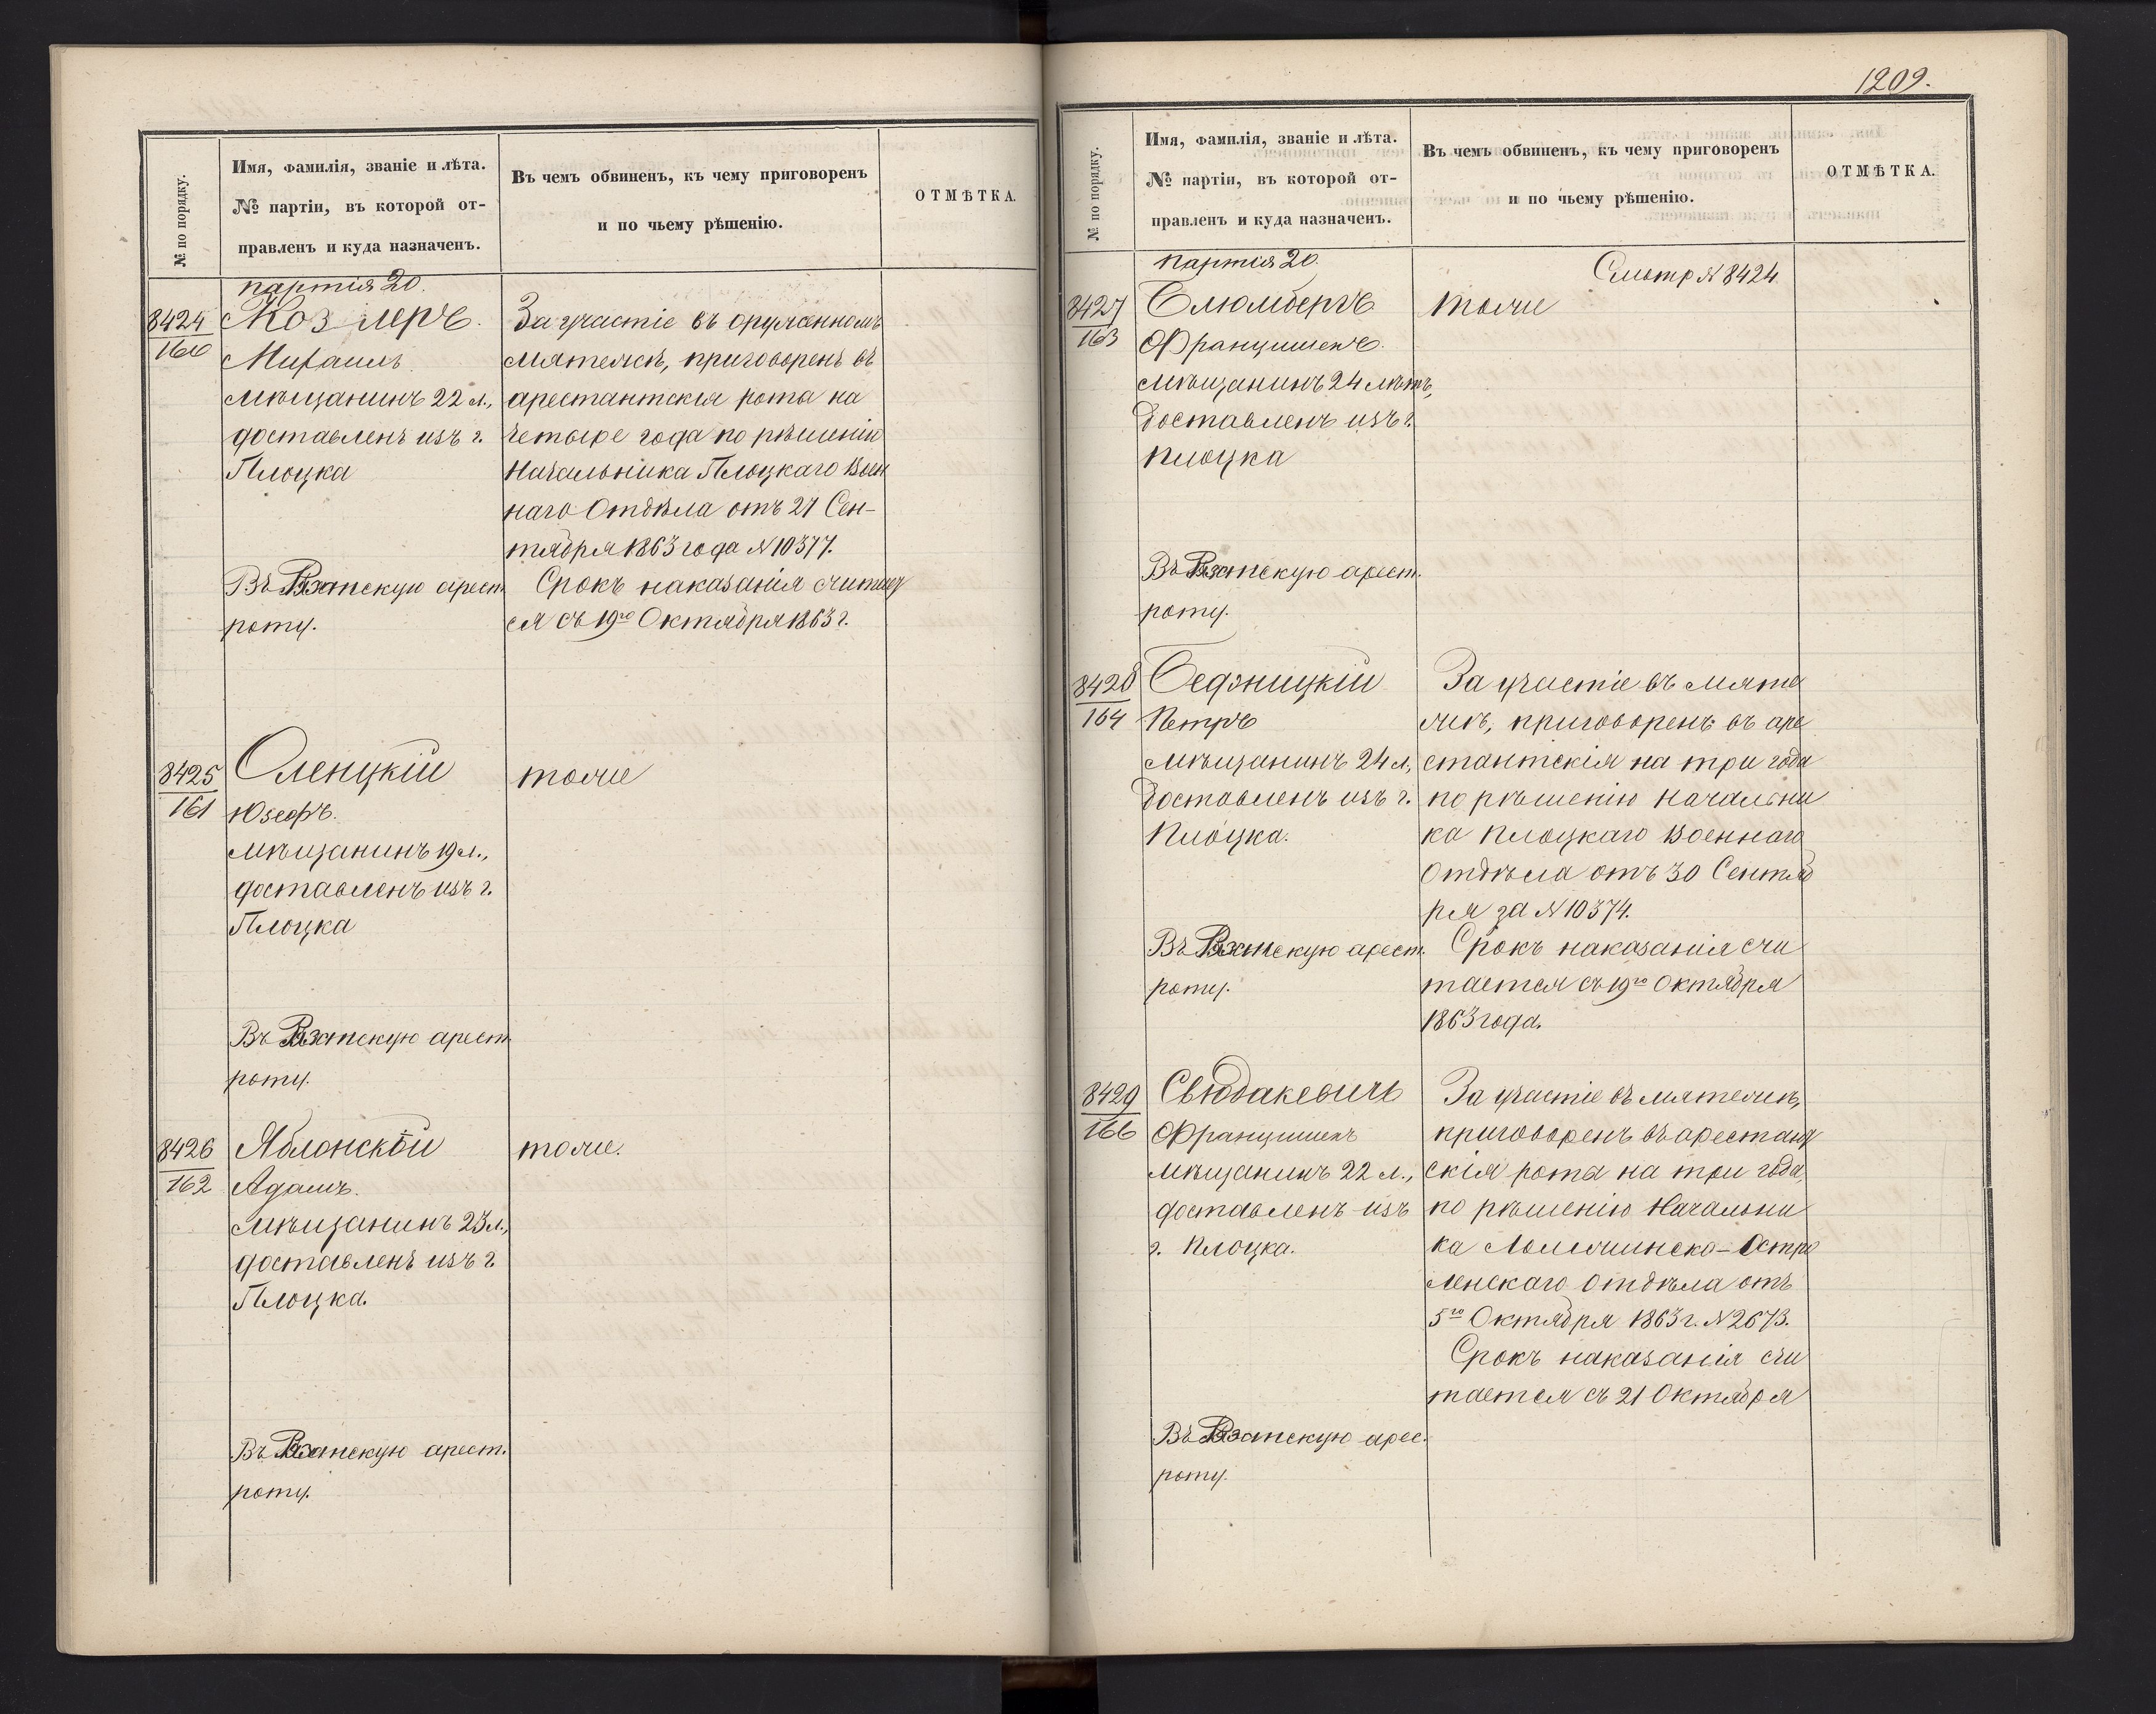 № по порядку.
Имя, фамилія, званіе и лѣта.
№ партіи, въ которой от-
правленъ и куда назначенъ.
Въ чемъ обвиненъ, къ чему приговоренъ
и по чьему рѣшенію.
ОТМѢТКА.
партія 20.
8424
160
Козлеръ.
Михаилъ
мѣщанинъ 22 л.,
доставленъ изъ г.
Плоцка
Въ арест.
роту.
За участіе въ оружанномъ
мятежѣ, приговоренъ въ
арестантскія рота на
четыре года по рѣшенію
Начальника Плоцкаго Воен
наго Отдѣла отъ 27 Сен-
тября 1863 года № 10377.
Срокъ наказанія считает
ся съ 19го Октября 1863 г.
8425
161
Оленцкій
Юзефъ.
мѣщанинъ 19 л.,
доставленъ изъ г.
Плоцка
Въ арест.
роту.
тоже
8426
162
Яблонскій
Адамъ.
мѣщанинъ 23 л.,
доставленъ изъ г.
Плоцка.
Въ арест.
роту.
тоже.
1209.
№ по порядку.
Имя, фамилія, званіе и лѣта.
№ партіи, въ которой от-
правленъ и куда назначенъ.
Въ чемъ обвиненъ, къ чему приговоренъ
и по чьему рѣшенію.
ОТМѢТКА.
партія 20.
Смотр № 8424
8427
163
Блюмбергъ
Францишекъ.
мѣщанинъ 24 лѣтъ,
доставленъ изъ г.
Плоцка
Въ арест.
роту.
тоже
8428
164
Седзицкій
Петръ
мѣщанинъ 24 л,
доставленъ изъ г.
Плоцка.
Въ арест.
роту.
За участіе въ мяте
жѣ, приговоренъ въ аре
стантскія на три года
по рѣшенію Начальни
ка Плоцкаго Военнаго
Отдѣла отъ 30 Сентяб
ря за № 10374.
Срокъ наказанія счи
тается съ 19го Октября
1863 года.
8429
166
Свюдакевичъ
Францишекъ
мѣщанинъ 22 л.,
доставленъ изъ
г. Плоцка.
Въ арес.
роту.
За участіе въ мятежѣ,
приговоренъ въ арестант
скія рота на три года,
по рѣшенію Начальни
ка Ломжинско-Остро
ленскаго Отдѣла отъ
5го Октября 1863 г. № 2673.
Срокъ наказанія счи
тается съ 21 Октября